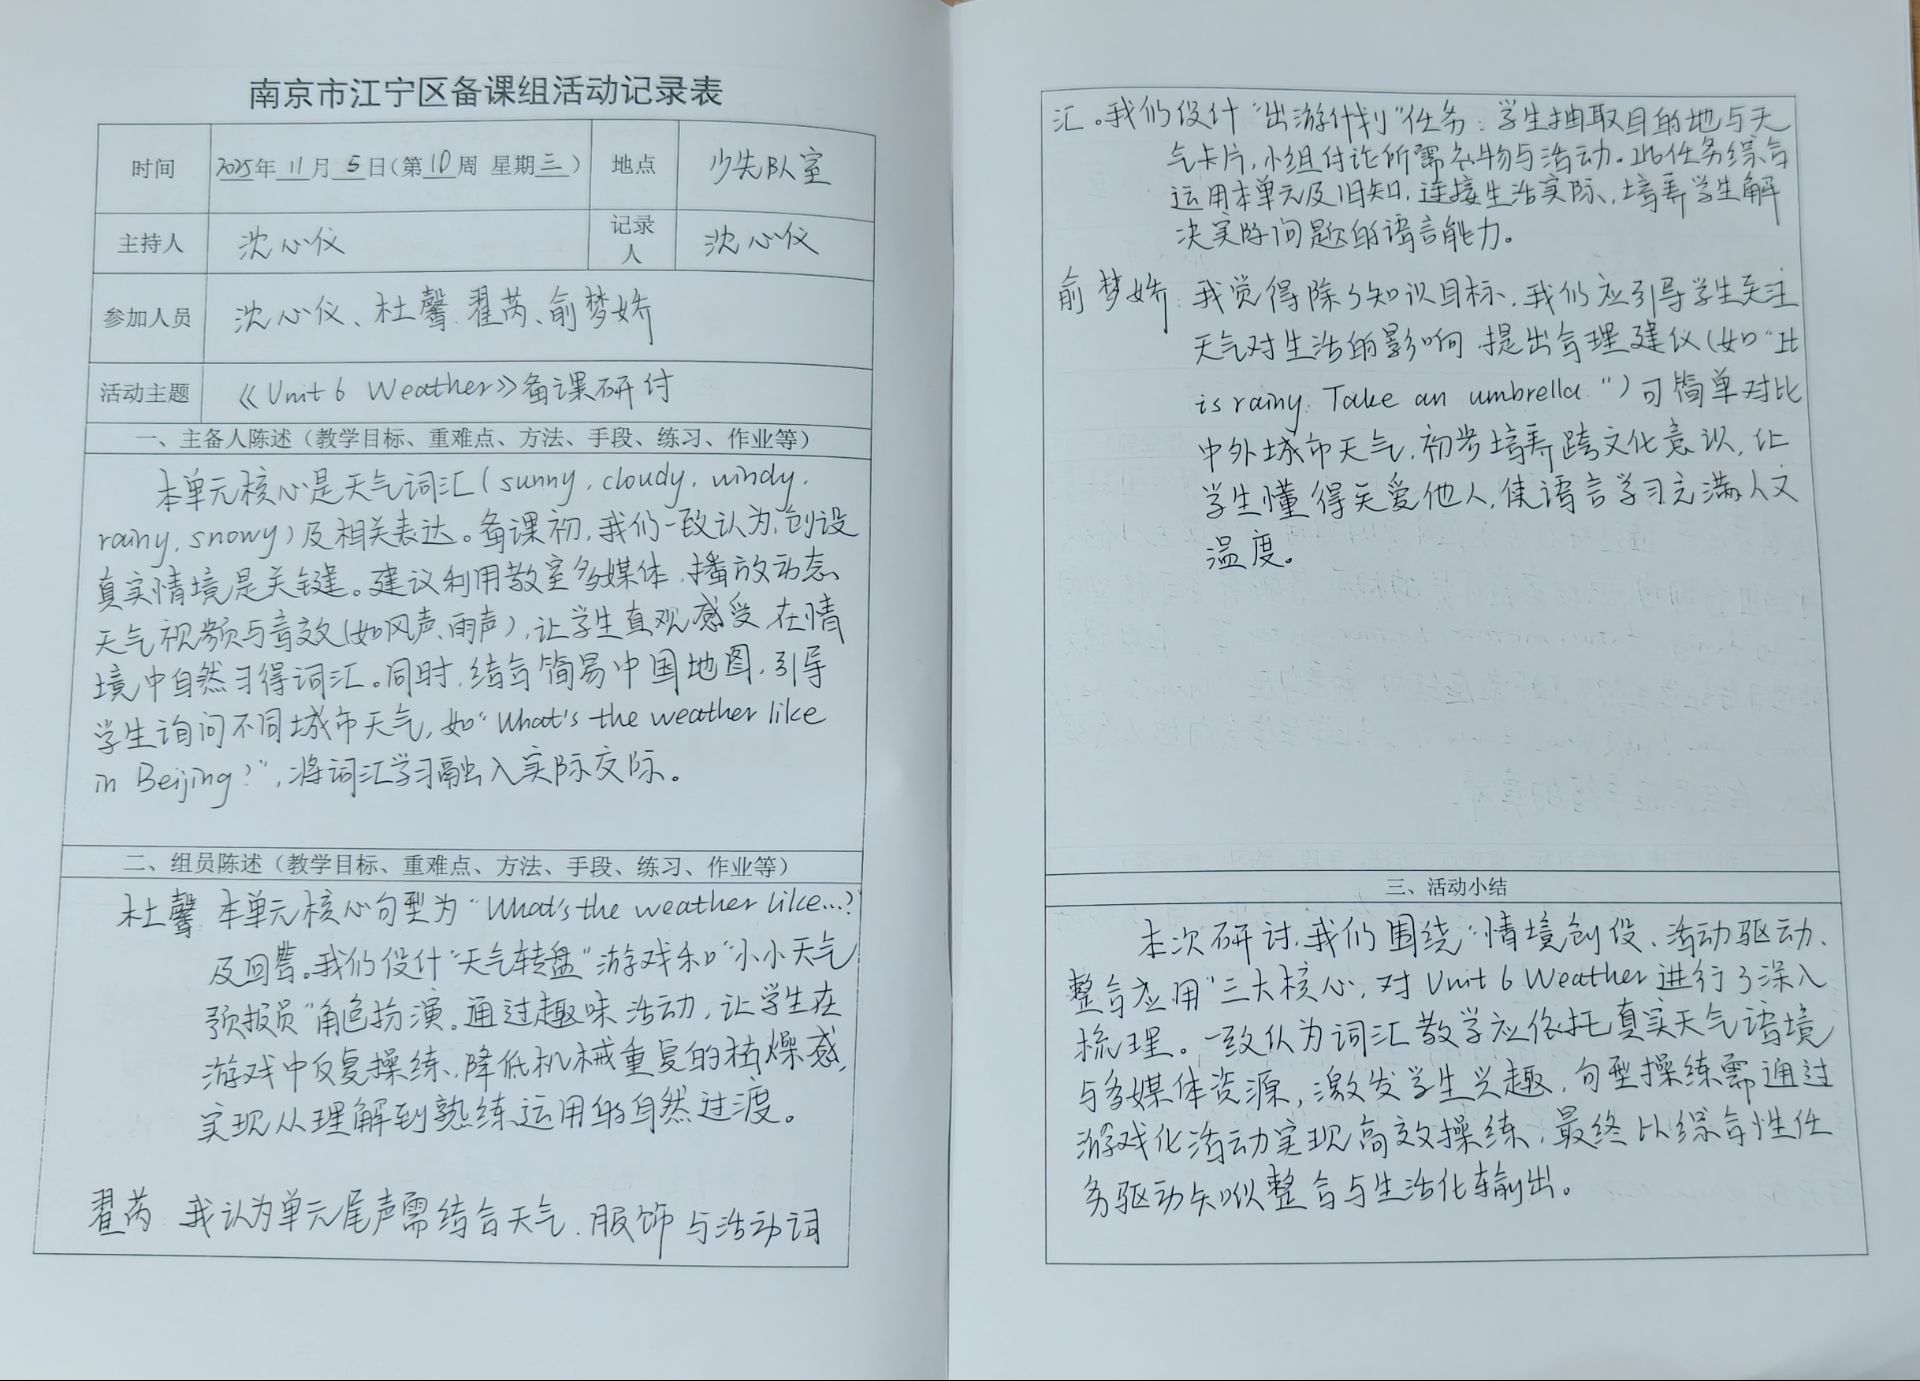 南京市江宁区备课组活动记录表
时间 2025年 11月 5日(第10周 星期三) 地点 少先队室
主持人 沈心仪 记录人 沈心仪
参加人员 沈心仪、杜馨、翟芮、俞梦娇
活动主题 《Unit 6 Weather》备课研讨
一、主备人陈述（教学目标、重难点、方法、手段、练习、作业等）
本单元核心是天气词汇(sunny, cloudy, windy,
rainy, snowy)及相关表达。备课初,我们一致认为,创设
真实情境是关键。建议利用教室多媒体,播放动态
天气视频与音效(如风声、雨声),让学生直观感受,在情
境中自然习得词汇。同时,结合简易中国地图,引导
学生询问不同城市天气,如“What's the weather like
in Beijing?”,将词汇学习融入实际交际。
二、组员陈述（教学目标、重难点、方法、手段、练习、作业等）
杜馨 本单元核心句型为“What's the weather like...?”
及回答。我们设计“天气转盘”游戏和“小小天气
预报员”角色扮演。通过趣味活动,让学生在
游戏中反复操练,降低机械重复的枯燥感,
实现从理解到熟练运用的自然过渡。
翟芮 我认为单元尾声需结合天气、服饰与活动词
汇。我们设计“出游计划”任务:学生抽取目的地与天
气卡片,小组讨论所需衣物与活动。此任务综合
运用本单元及旧知,连接生活实际,培养学生解
决实际问题的语言能力。
俞梦娇:我觉得除了知识目标,我们应引导学生关注
天气对生活的影响,提出合理建议(如“It
is rainy. Take an umbrella.”)可简单对比
中外城市天气,初步培养跨文化意识,让
学生懂得关爱他人,使语言学习充满人文
温度。
三、活动小结
本次研讨,我们围绕“情境创设、活动驱动、
整合应用”三大核心,对Unit 6 Weather进行了深入
梳理。一致认为词汇教学应依托真实天气语境
与多媒体资源,激发学生兴趣,句型操练需通过
游戏化活动实现高效操练,最终以综合性任
务驱动知识整合与生活化输出。